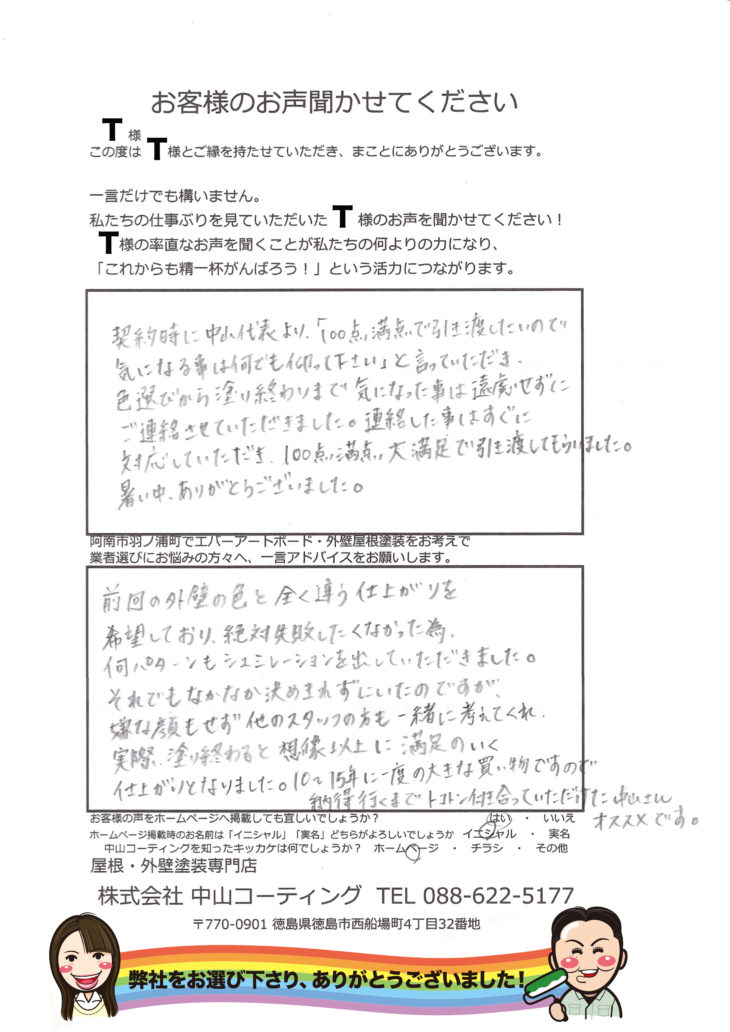 お客様のお声聞かせてください
T 様
この度は T 様とご縁を持たせていただき、まことにありがとうございます。
一言だけでも構いません。
私たちの仕事ぶりを見ていただいた T 様のお声を聞かせてください！
T様の率直なお声を聞くことが私たちの何よりの力になり、
「これからも精一杯がんばろう！」という活力につながります。
契約時に中山代表より、「100点満点で引き渡したいので
気になる事は何でも仰って下さい」と言っていただき、
色選びから塗り終わりまで気になった事は遠慮せずに
ご連絡させていただきました。連絡した事はすぐに
対応していただき、100点満点、大満足で引き渡してもらいました。
暑い中、ありがとうございました。
阿南市羽ノ浦町でエバーアートボード・外壁屋根塗装をお考えで
業者選びにお悩みの方々へ、一言アドバイスをお願いします。
前回の外壁の色と全く違う仕上がりを
希望しており、絶対失敗したくなかった為、
何パターンもシュミレーションを出していただきました。
それでもなかなか決めきれずにいたのですが、
嫌な顔もせず他のスタッフの方も一緒に考えてくれ、
実際、塗り終わると想像以上に満足のいく
仕上がりとなりました。10〜15年に一度の大きな買い物ですので
納得行くまでトコトン付き合っていただけた中山さん
オススメです。
お客様の声をホームページへ掲載しても宜しいでしょうか？ はい ・ いいえ
ホームページ掲載時のお名前は「イニシャル」「実名」どちらがよろしいでしょうか イニシャル ・ 実名
中山コーティングを知ったキッカケは何でしょうか？ ホームページ ・ チラシ ・ その他
屋根・外壁塗装専門店
株式会社 中山コーティング TEL 088-622-5177
〒770-0901 徳島県徳島市西船場町4丁目32番地
弊社をお選び下さり、ありがとうございました！